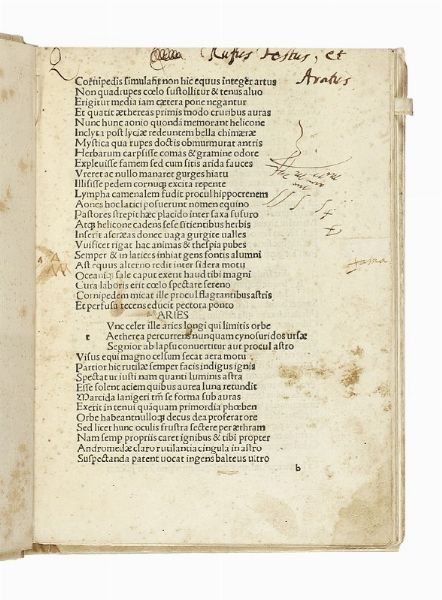 Rufus Festus, et
Aratus
Cornipedis simulasit non hic equus integer artus
Non quadrupes cœlo sustollitur & tenus aluo
Erigitur media iam cætera pone negantur
Et quatit æthereas primis modo cruribus auras
Nunc hunc aonio quondã memorant helicone
Inclyta post lyciæ redeuntem bella chimæræ
Mystica qua rupes doctis obmurmurat antris
Herbarum carpsisse comas & gramine odore
Expleuisse famem sed cum sitis arida fauces
Vreret ac nullo manaret gurges hiatu
Illisisse pedem cornuq; excita repente
Lympha camenalem fudit procul hippocrenem
Aones hoc latici posuerunt nomen equino
Pastores strepit hæc placido inter saxa susuro
Atq; helicone cadens sese sitientibus herbis
Inserit ascræas donec uaga gurgite ualles
Viuiscet rigat hac animas & thespia pubes
Semper & in latices inhiat gens fontis alumni
Ast equus alterno redit inter sidera motu
Oceaniq; sale caput exerit haud tibi magni
Cura laboris erit cœlo spectare sereno
Cornipedem micat ille procul flagrantibus astris
Et perfusa recens educit pectora ponto
ARIES
Vnc celer ille aries longi qui limitis orbe
t Aetherea percurrens nunquam cynosuridos ursæ
Segnior ab lapsu conuertitur aut procul astro
Visus equi magno celsum secat aera motu
Partior hic rutilæ semper facis indigus ignis
Spectatur iusti nam quanti luminis astra
Esse solent aciem quibus aurea luna retundit
Marcida lanigeri tm̃ se forma sub auras
Exerit in tenui quãquam primordia phœben
Orbe habeant nulloq; decus dea proferat ore
Sed licet hunc oculis frustra sectere per æthram
Nam semp propriis caret ignibus & tibi propter
Andromedæ claro rutilantia cingula in astro
Suspectanda patent uocat ingens balteus ultro
b